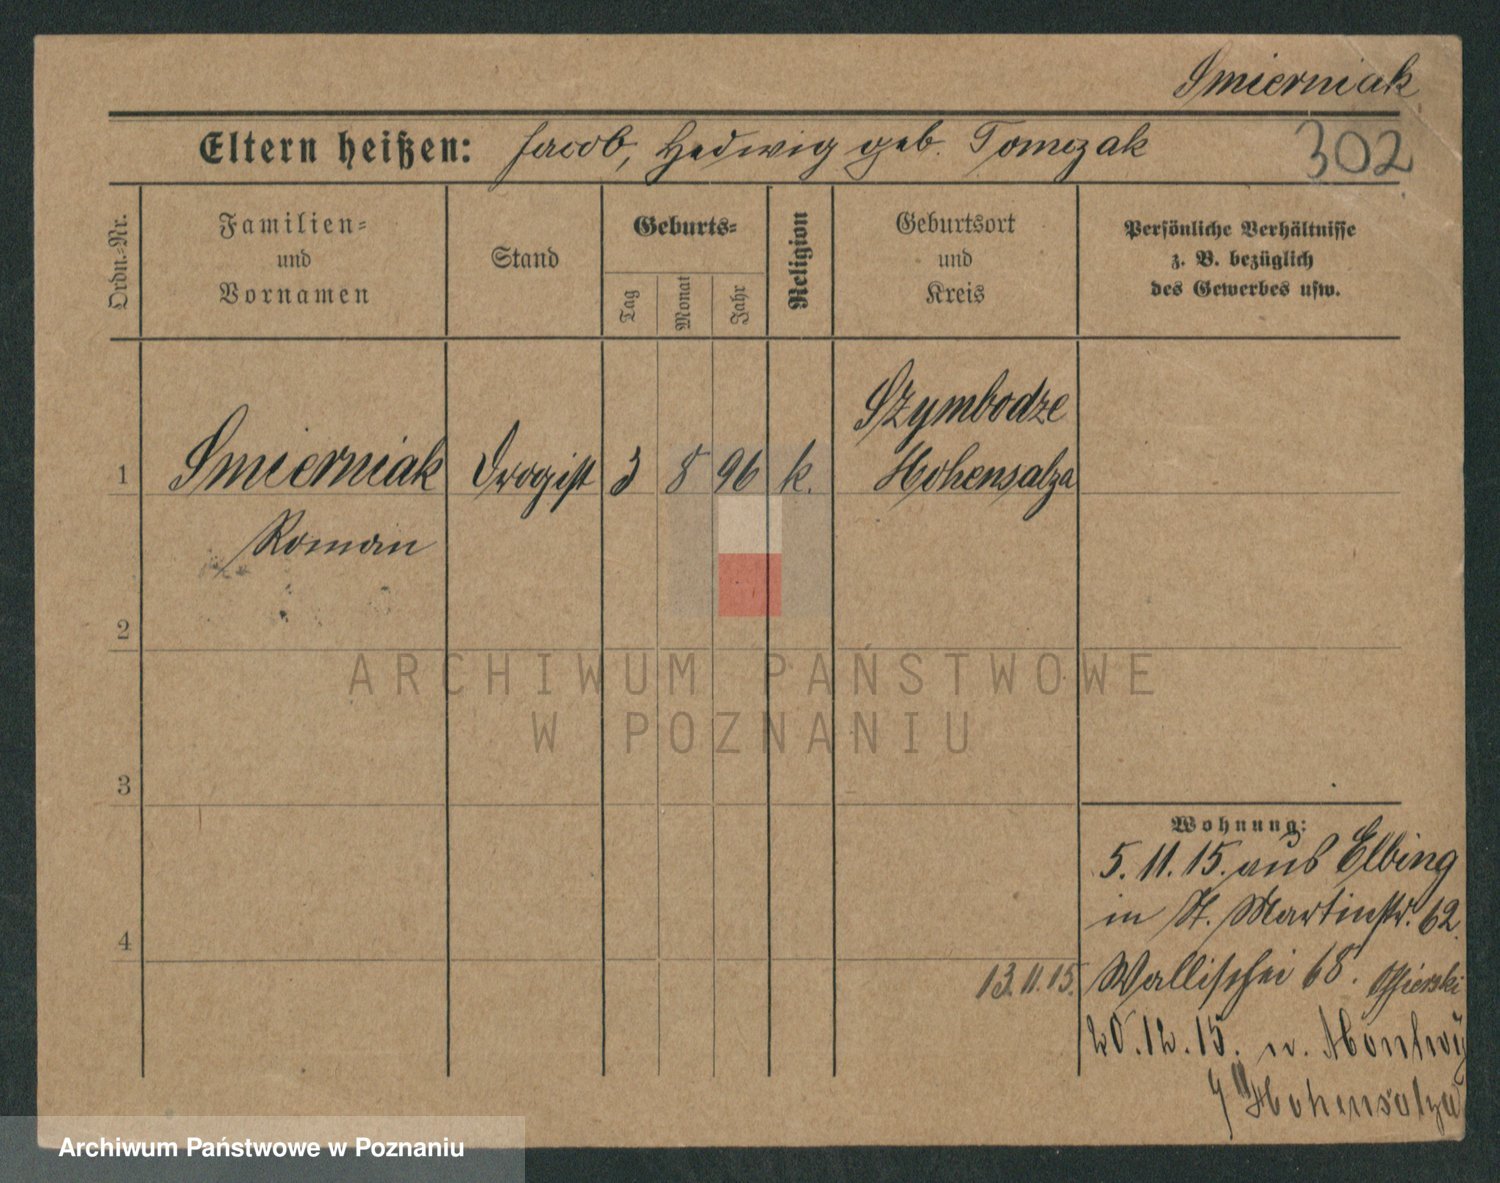 Smierniak
Eltern heißen: Jacob, Hedwig geb. Tomczak
302
Ordn.-Nr.
Familien-
und
Vornamen
Stand
Geburts-
Tag
Monat
Jahr
Religion
Geburtsort
und
Kreis
Persönliche Verhältnisse
z. B. bezüglich
des Gewerbes usw.
1
Smierniak
Roman
Drogist
3
8
96
k.
Szymbodze
Hohensalza
2
ARCHIWUM PAŃSTWOWE
W POZNANIU
3
4
Wohnung:
5. 11. 15. aus Elbing
in St. Martinstr. 62.
13. 11. 15. Wallischei 68.
20. 12. 15. n.
Hohensalza
Archiwum Państwowe w Poznaniu